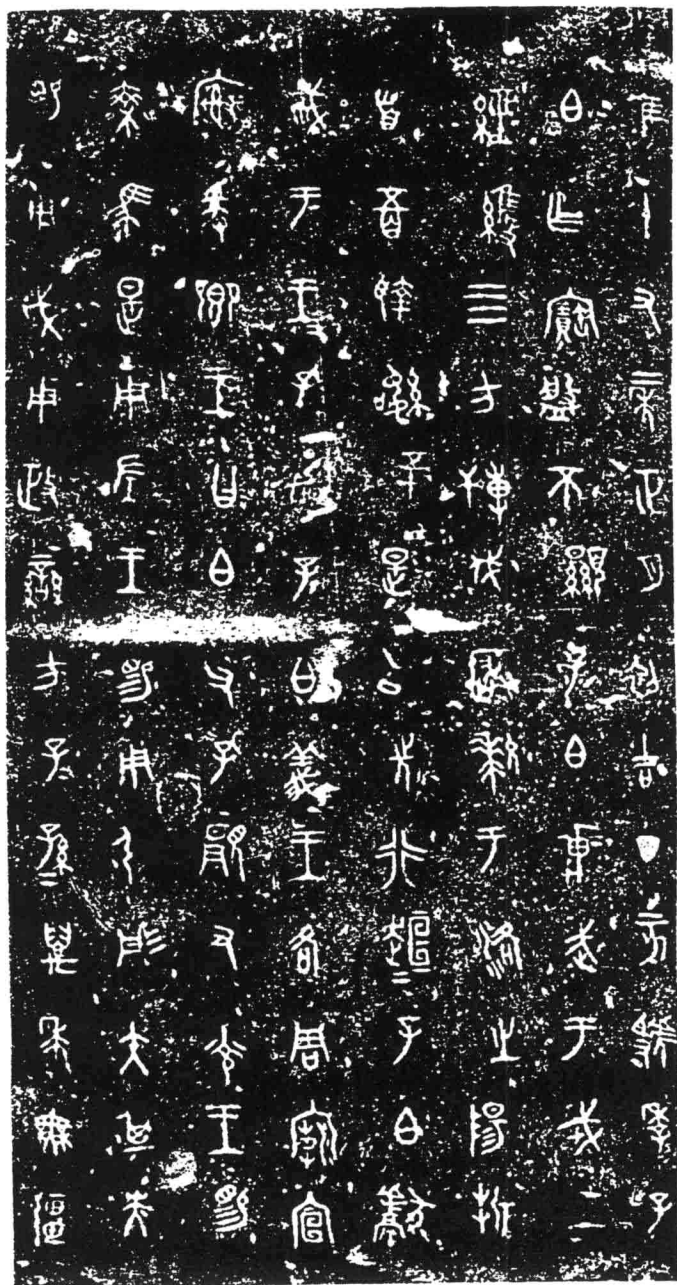 隹十又二年正月初吉丁亥虢季子
白乍寶盤不顯子白武于戎工
經維四方搏伐玁狁于洛之陽折
首五百執訊五十是以先行桓桓子白獻
馘于王王孔加子白義王各周廟宣
榭爰鄉王曰白父孔顯又光王賜
乘馬是用左王賜用弓彤矢其央
賜用戉用政蠻方子子孫孫萬年無疆